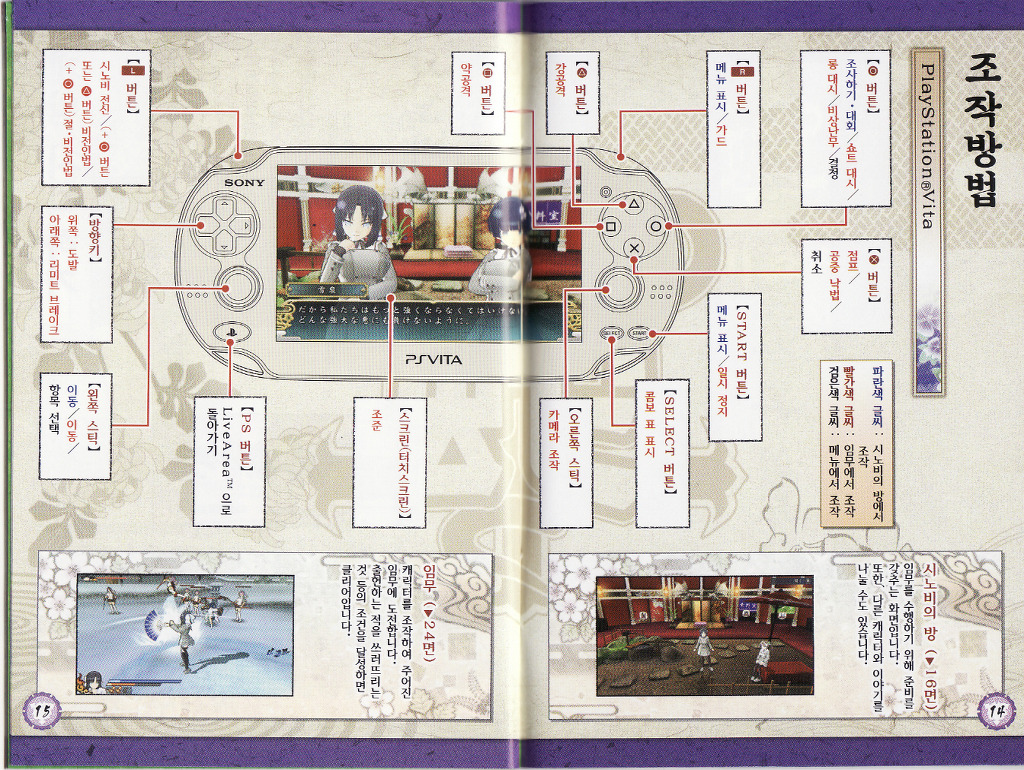 조작방법
PlayStation®Vita
파란색 글씨 : 시노비의 방에서
조작
빨간색 글씨 : 임무에서 조작
검은색 글씨 : 메뉴에서 조작
【○ 버튼】
조사하기·대화/쇼트 대시/
롱 대시/비상난무/결정
【× 버튼】
점프/
공중 낙법/
취소
【R 버튼】
메뉴 표시/가드
【START 버튼】
메뉴 표시/일시 정지
【SELECT 버튼】
콤보 표 표시
【△ 버튼】
강공격
【오른쪽 스틱】
카메라 조작
【□ 버튼】
약공격
【스크린(터치스크린)】
조준
【PS 버튼】
LiveArea™으로
돌아가기
【L 버튼】
시노비 전신/(+○ 버튼
또는 △ 버튼)비전인법/
(+○ 버튼)절·비전인법
【방향키】
위쪽 : 도발
아래쪽 : 리미트 브레이크
【왼쪽 스틱】
이동/이동/
항목 선택
SONY
PSVITA
SELECT
START
料室
雪泉
だから私たちはもっと強くならなくてはいけない
どんな強大な悪にも負けないように。
시노비의 방 (▼16면)
임무를 수행하기 위해 준비를
갖추는 화면입니다.
또한, 다른 캐릭터와 이야기를
나눌 수도 있습니다.
14
임무 (▼24면)
캐릭터를 조작하여 주어진
임무에 도전합니다.
출현하는 적을 쓰러뜨리는
것 등의 조건을 달성하면
클리어입니다.
15